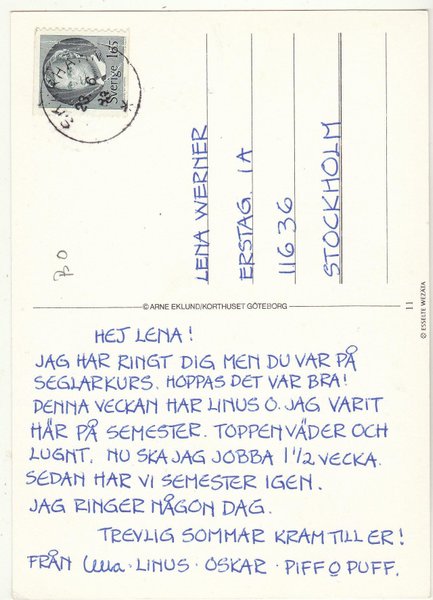 HEJ LENA!
JAG HAR RINGT DIG MEN DU VAR PÅ
SEGLARKURS. HOPPAS DET VAR BRA!
DENNA VECKAN HAR LINUS O. JAG VARIT
HÄR PÅ SEMESTER. TOPPENVÄDER OCH
LUGNT. NU SKA JAG JOBBA 1 1/2 VECKA.
SEDAN HAR VI SEMESTER IGEN.
JAG RINGER NÅGON DAG.
TREVLIG SOMMAR KRAM TILL ER!
FRÅN LENA · LINUS · OSKAR · PIFF O PUFF.
© ARNE EKLUND/KORTHUSET GÖTEBORG
11
© ESSELTE WEZÄTA
LENA WERNER
ERSTAG. 1A
116 36
STOCKHOLM
Sverige 165